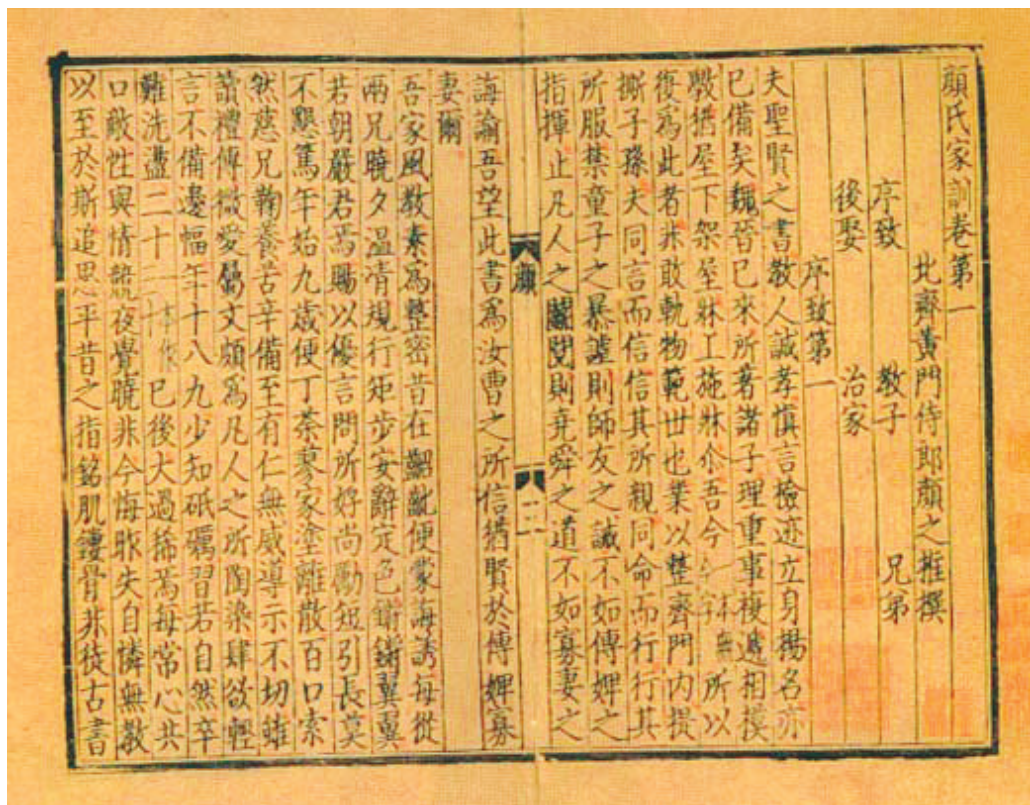 顔氏家訓卷第一
北齊黃門侍郎顔之推撰
序致 教子 兄弟
後娶 治家
序致第一
夫聖賢之書教人誠孝慎言檢迹立身揚名亦
已備矣魏晉已來所著諸子理重事複遞相模
斆猶屋下架屋牀上施牀尒吾今所以
復爲此者非敢軌物範世也業以整齊門内提
撕子孫夫同言而信信其所親同命而行行其
所服禁童子之暴謔則師友之誡不如傅婢之
指揮止凡人之鬭鬩則堯舜之道不如寡妻之
顔
誨諭吾望此書爲汝曹之所信猶賢於傅婢寡
妻爾
吾家風教素爲整密昔在齠齔便蒙誨誘每從
兩兄曉夕温凊規行矩步安辭定色鏘鏘翼翼
若朝嚴君焉賜以優言問所好尚勵短引長莫
不懇篤年始九歲便丁荼蓼家塗離散百口索
然慈兄鞠養苦辛備至有仁無威導示不切雖
讀禮傳微愛屬文頗爲凡人之所陶染肆欲輕
言不備邊幅年十八九少知砥礪習若自然卒
難洗盪二十已後大過稀焉每常心共
口敵性與情競夜覺曉非今悔昨失自憐無教
以至於斯追思平昔之指銘肌鏤骨非徒古書